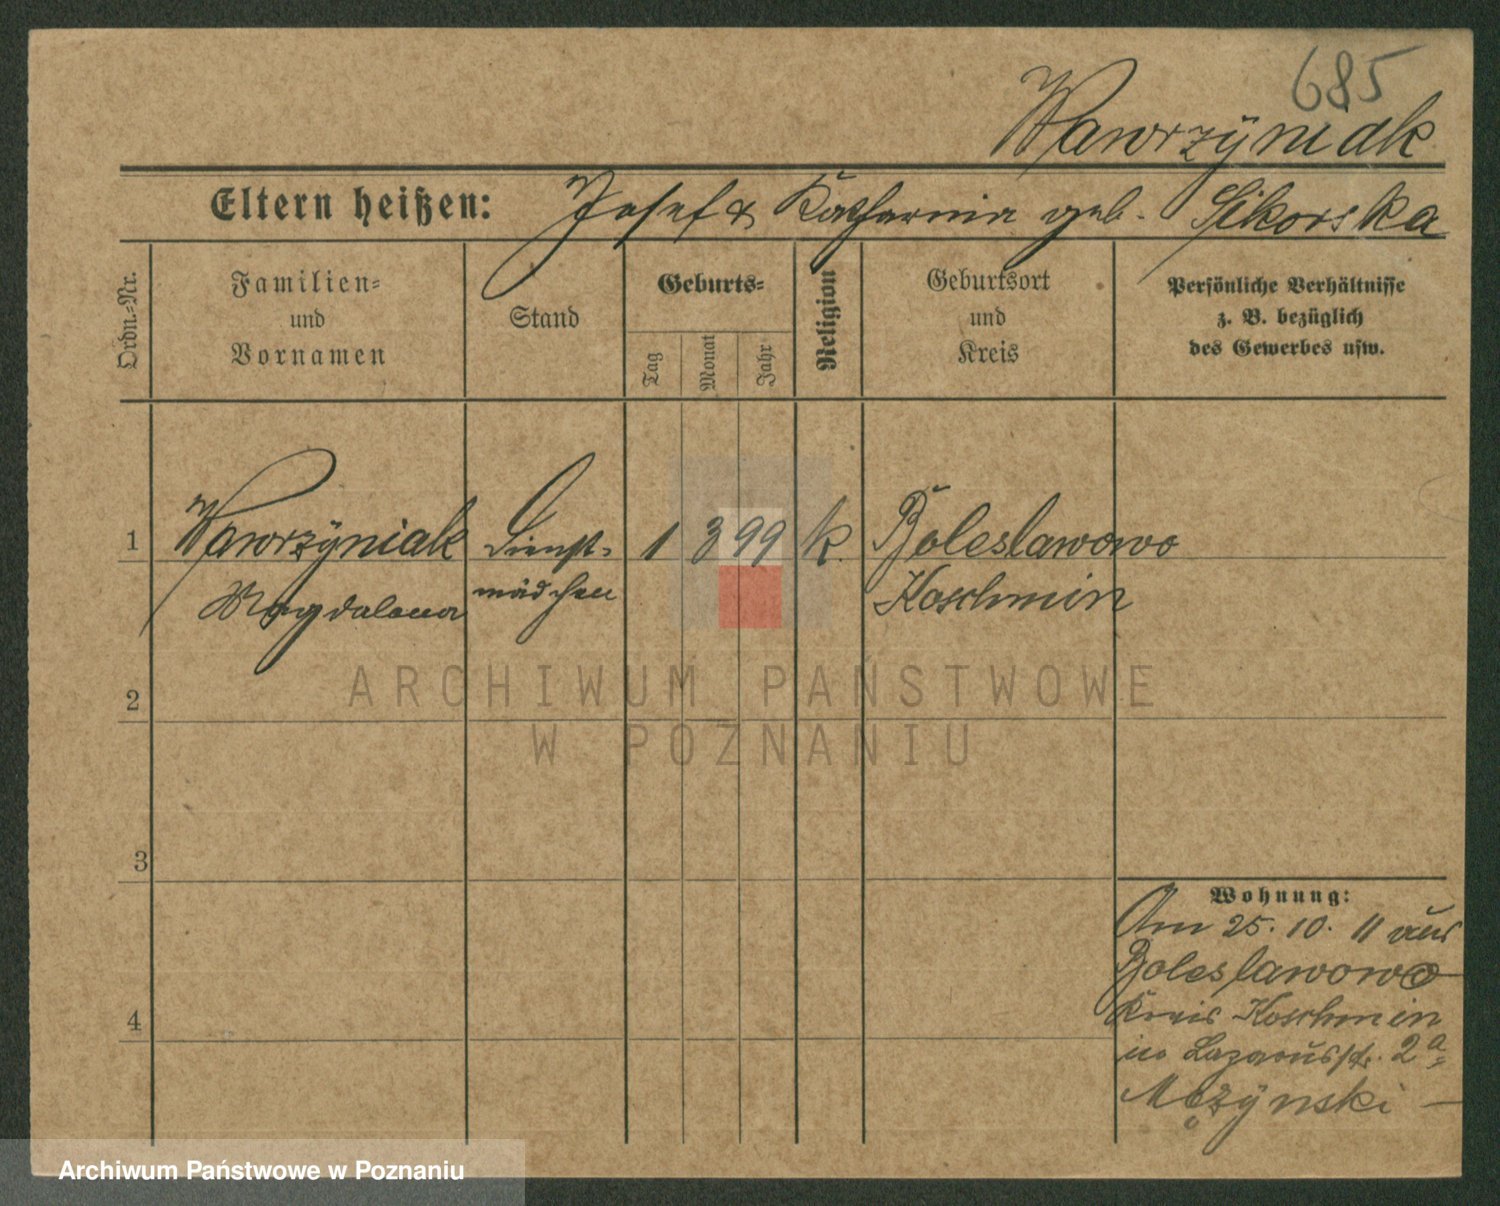 685
Wawrzÿniak
Eltern heißen: Josef & Katharina geb. Sikorska
Ordn.-Nr.
Familien-
und
Vornamen
Stand
Geburts-
Tag
Monat
Jahr
Religion
Geburtsort
und
Kreis
Persönliche Verhältnisse
z. B. bezüglich
des Gewerbes usw.
1 Wawrzÿniak Dienst- 1 3 99 k. Boleslawowo
Magdalena mädchen Koschmin
2
3
4
Wohnung:
Am 25. 10. 11 aus
Boleslawowo
Kreis Koschmin
in Lazarusstr. 2a
Mężÿnski
ARCHIWUM PAŃSTWOWE
W POZNANIU
Archiwum Państwowe w Poznaniu